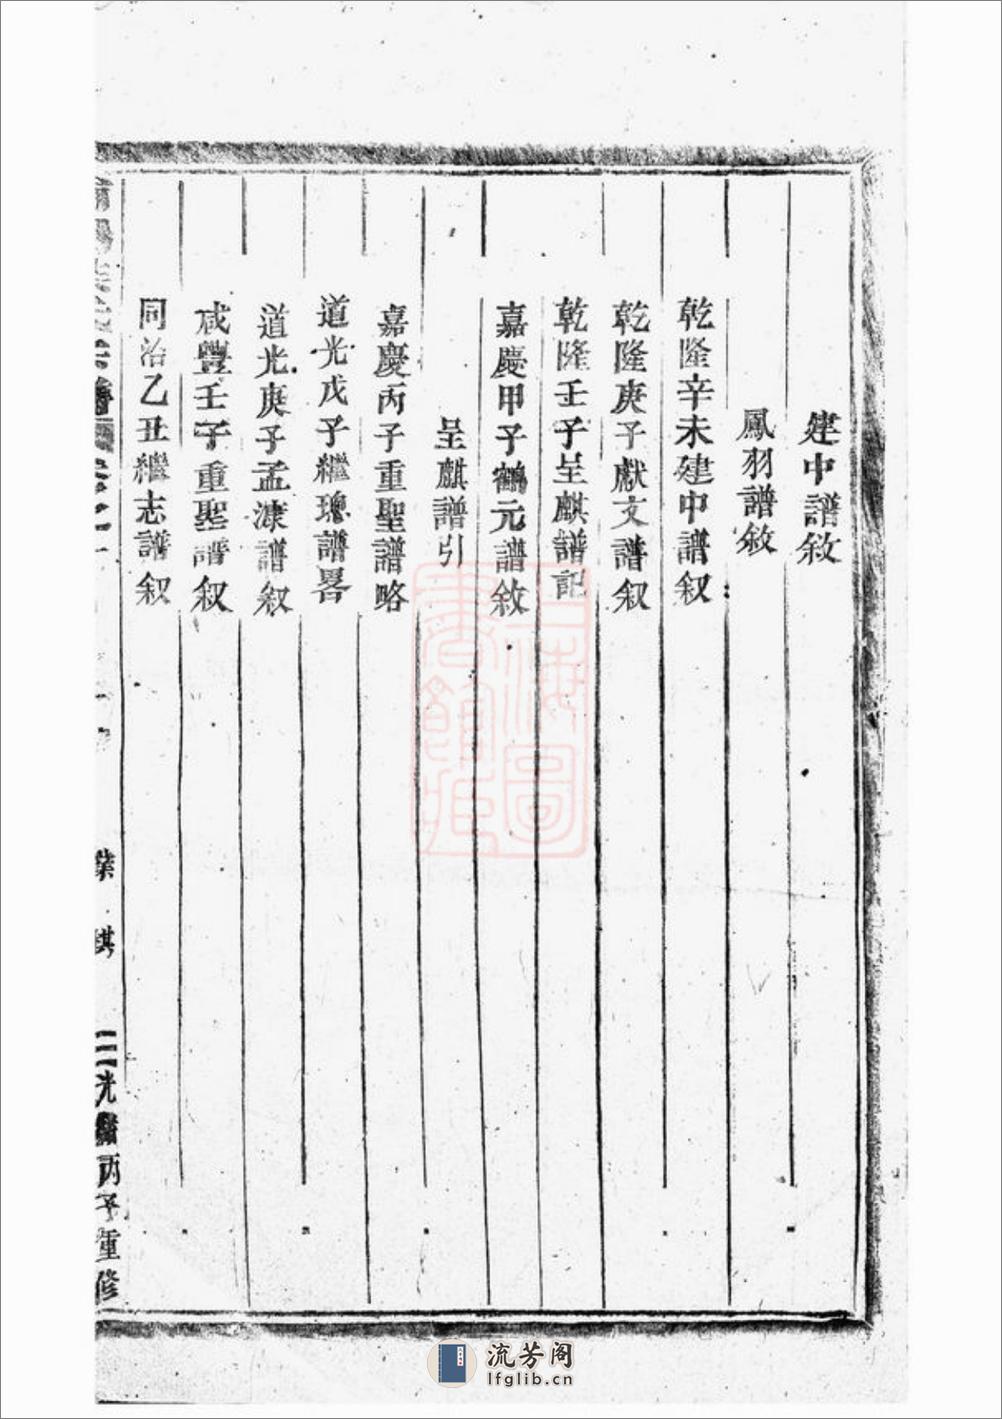 建中譜敘
鳳羽譜敘
乾隆辛未建中譜叙
乾隆庚子獻文譜叙
乾隆壬子呈麒譜記
嘉慶甲子鶴元譜敘
呈麒譜引
嘉慶丙子重聖譜略
道光戊子繼璁譜畧
道光庚子孟溓譜叙
咸豐壬子重聖譜叙
同治乙丑繼志譜叙
二 光緒丙子重修
上海圖書館藏
流芳阁
lfglib.cn